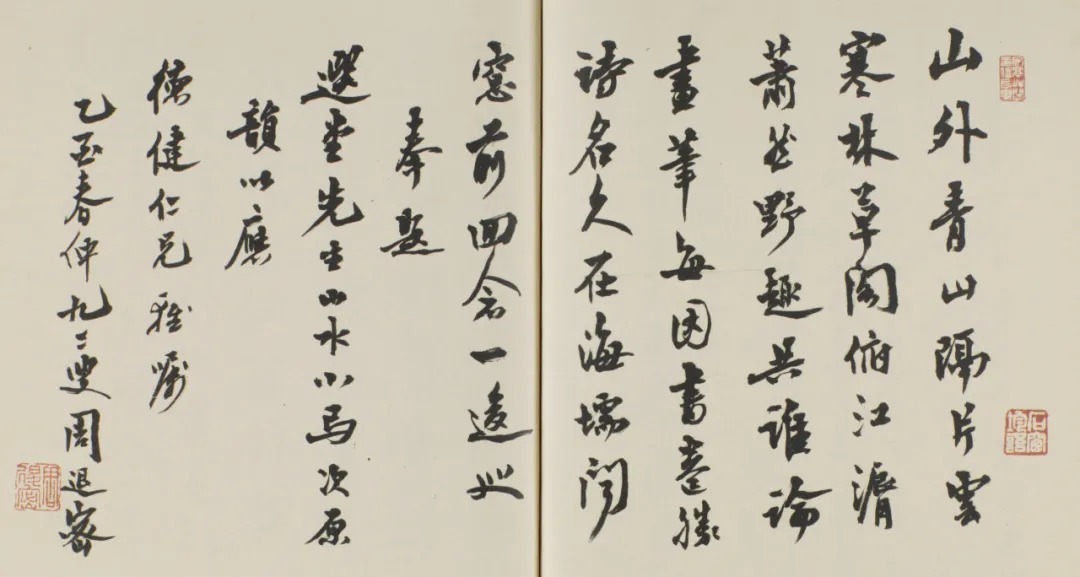 山外青山隔片雲
寒林草閣俯江漘
蕭然野趣共誰論
畫筆每因書勝
詩名久在海壖聞
窓前囬念一逡巡
奉題
選堂先生山水小冩次原
韻以應
德健仁兄雅囑
乙酉春仲九二叟周退密